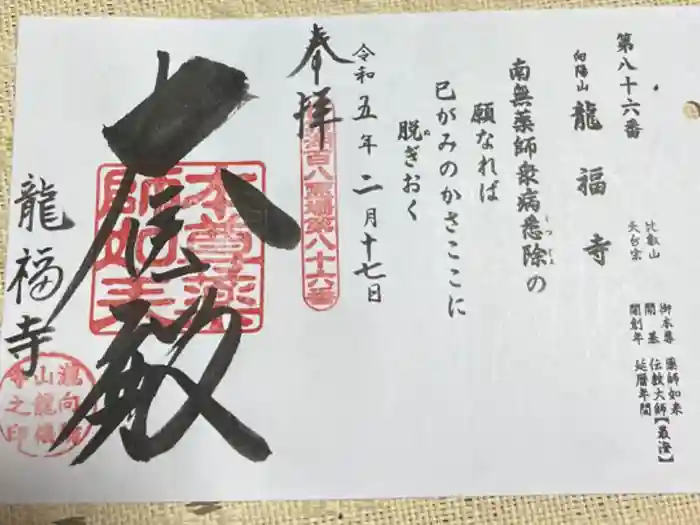 第八十六番
向陽山 龍福寺
比叡山
天台宗
御本尊 薬師如来
開基 伝教大師【最澄】
開創年 延暦年間
南無薬師衆病悉除の
しつじょ
願なれば
己がみのかさここに
脱ぎおく
ぬ
令和五年二月十七日
奉拝
百八霊場第八十六番
大医殿
本尊薬師如来
龍福寺